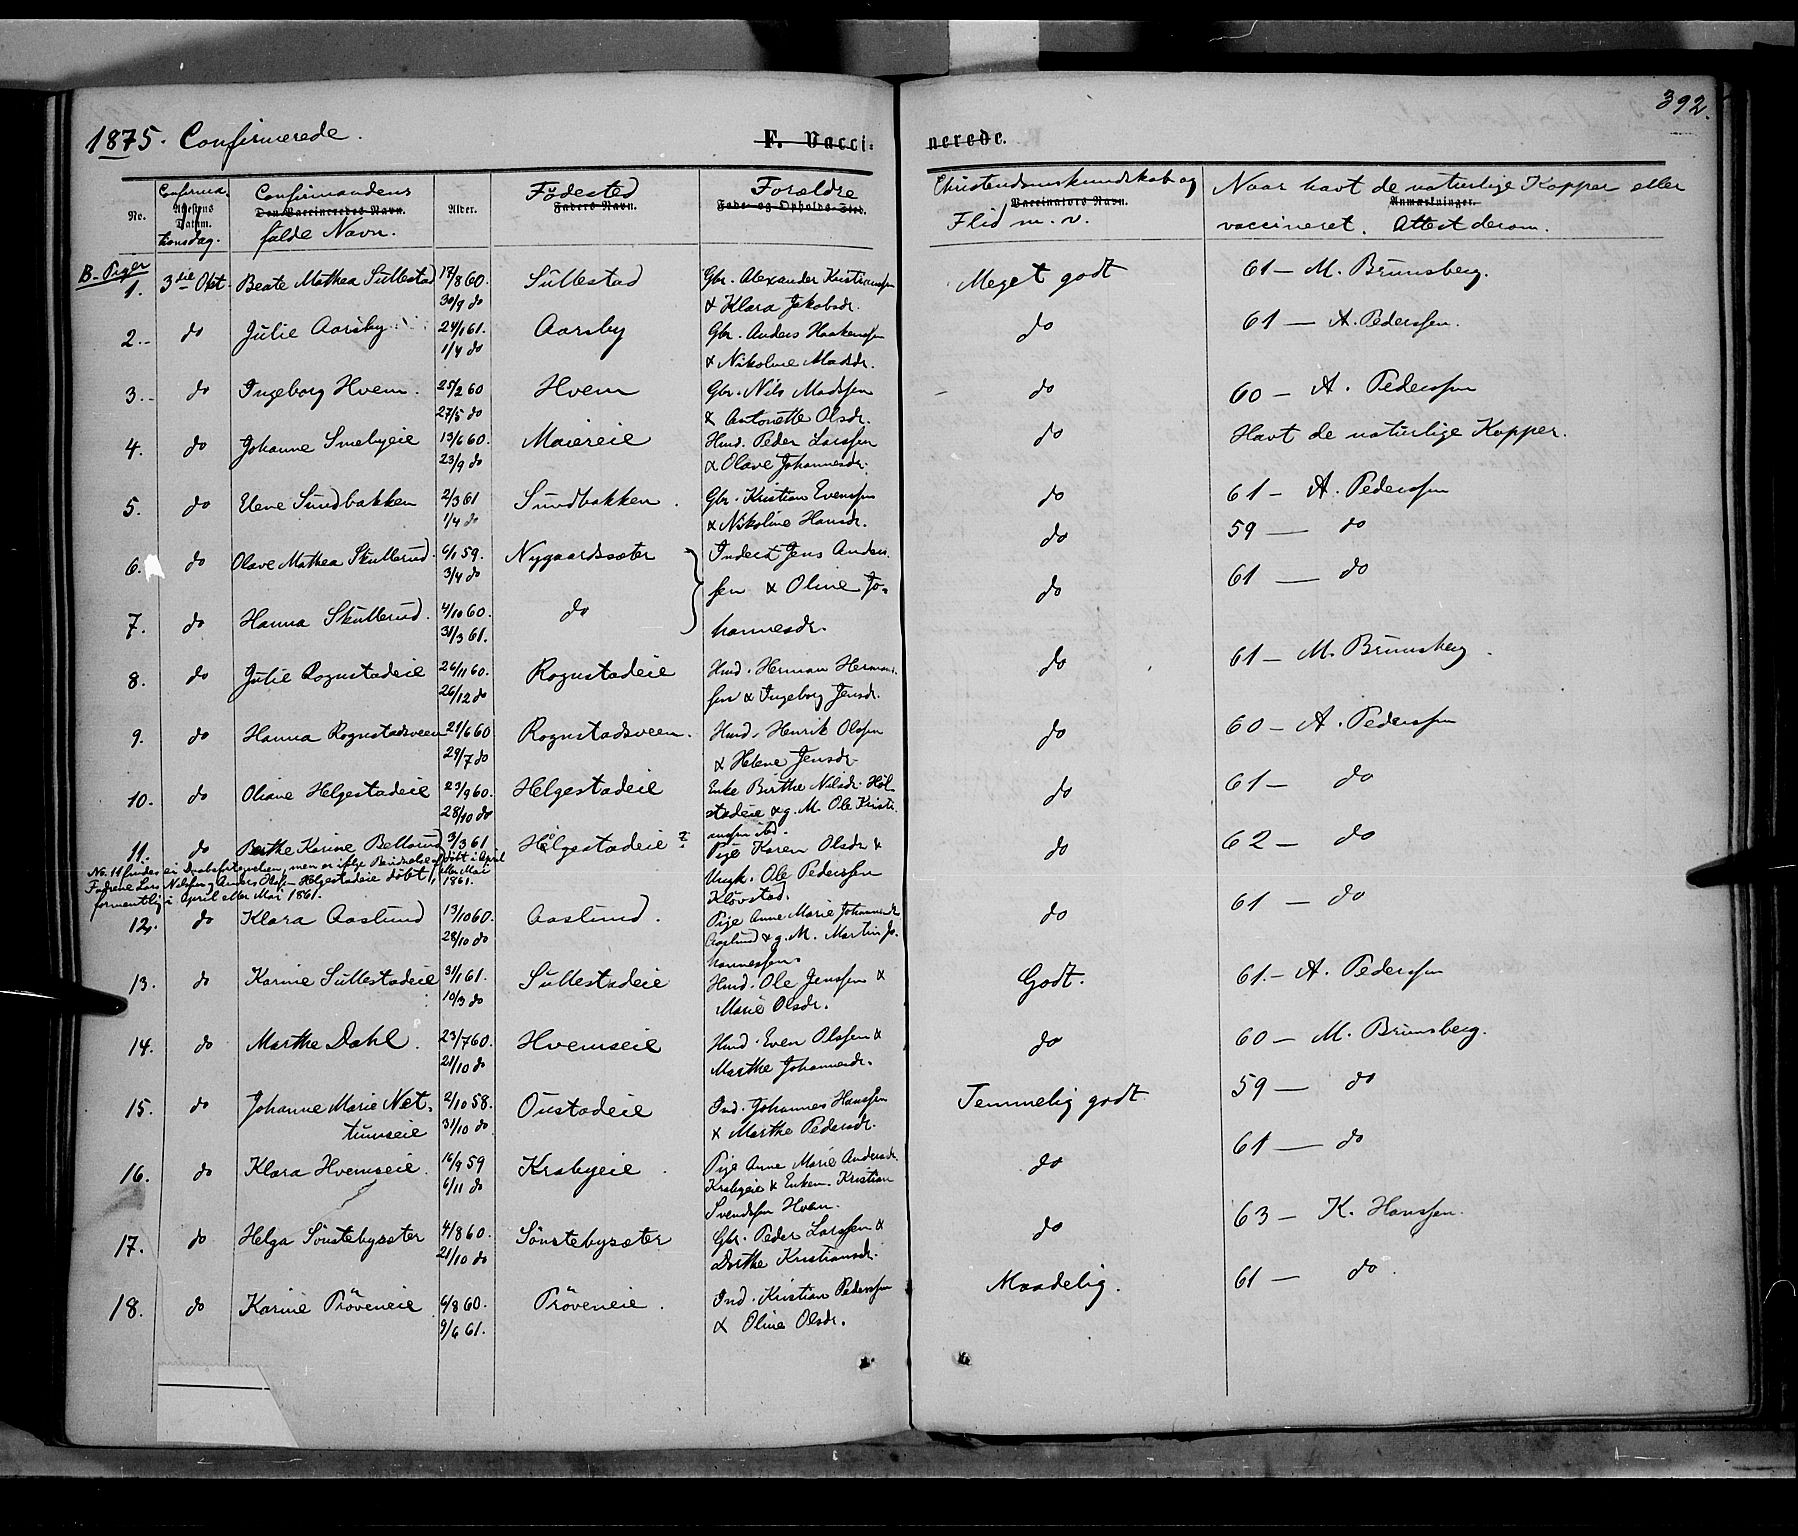 392.
1875. Confirmerede.
F. Vaccinerede.
No. Confirmationsdag. Agestens Datum. Confirmandens fulde Navn. Den Vaccineredes Navn. Alder. Födested Faders Navn. Forældre Føde- og Opholds-Sted. Christendomskundskab og Flid m. v. Vaccinators Navn. Naar havt de naturlige Kopper eller vaccineret. Attest derom. Anmærkninger.
B. Piger
1. 3die Okt. Beate Mathea Sullestad 18/8 60. Sullestad Gbr. Alexander Kristianssen Meget godt 61 — M. Brunsberg.
30/9 do & Klara Jakobsdr.
2. do Julie Aarsby 24/1 61. Aarsby Gbr. Anders Haakenssen do 61 — A. Pederssen.
1/4 do & Nikoline Madsdr.
3. do Ingeborg Hvem. 25/2 60 Hvem Gbr. Nils Madssen do 60 — A. Pederssen
27/5 do & Antonette Olsdr.
4. do Johanne Smebyeie 13/6 60. Maiereie Hmd. Peder Larssen do Havt de naturlige Kopper.
23/9 do & Olave Johannesdr.
5. do Sundbakken 2/3 61 Sundbakken. Gbr. Kristian Evenssen do 61 — A. Pederssen
1/4 do & Nikoline Hansdr.
6. do Olave Mathea Skullerud. 6/1 59. Nygaardssæter Inderst Jens Anders- do 59 — do
3/4 do sen & Oline Jo-
7. do Hanna Skullerud. 4/10 60. do hannesdr. do 61 — do
31/3 61.
8. do Julie Rognstadeie 26/11 60. Rognstadeie Hmd. Herman Herman- do 61 — M. Brunsberg.
26/12 do sen & Ingeborg Jensdr.
9. do Hanna Rognstadsveen 21/6 60 Rognstadsveen. Hmd. Henrik Olssen do 60 — A. Pederssen
29/7 do & Helene Jensdr.
10. do Oliane Helgestadeie 23/9 60. Helgestadeie Enke Birthe Nilsdr. Hel- do 61 — do
28/10 do stadeie & g. M. Ole Kristi-
anssen ibd.
11. do Berthe Karine Bellerud 3/3 61 Helgestadeie ? Pige Karen Olsdr & do 62 — do
döbt i April eller Mai 1861. Ungk. Ole Pederssen
Klövstad.
No. 11 findes ei Daabsfortegnelsen, men er ifölge
Fadrene Lars Nilssen & Anders Olss. — Helgestadeie döbt
formentlig i April eller Mai 1861.
12. do Klara Aaslund 13/10 60. Aaslund. Pige Anne Marie Johannesdr. do 61 — do
28/10 do Aaslund & g. M. Martin Jo-
hannessen.
13. do Karine Sullestadeie 31/1 61. Sullestadeie Hmd. Ole Jenssen & Godt. 61. — A. Pederssen
10/3 do Marie Olsdr.
14. do Marthe Dahl. 23/7 60. Hvemseie Hmd. Even Olssen & do 60 — M. Brunsberg.
21/10 do Marthe Johannesdr.
15. do Johanne Marie Net- 2/10 58. Oustadeie Ind. Johannes Hanssen Temmelig godt 59 — do
tumseie 31/10 do & Marthe Pedersdr.
16. do Klara Hvemseie. 16/9 59 Krabyeie. Pige Anne Marie Andersdr. do 61 — do
6/11 do Krabyeie & Enkem. Kristian
Svendssen Hvem.
17. do Helga Sönstebysæter 4/8 60. Sönstebysæter Gbr. Peder Larssen & do 63 — K. Hanssen.
21/10 do Dorthe Kristiansdr.
18. do Karine Pröveneie 6/8 60. Pröveneie. Ind. Kristian Pederssen Maadelig. 61 — do
9/6 61. & Oline Olsdr.